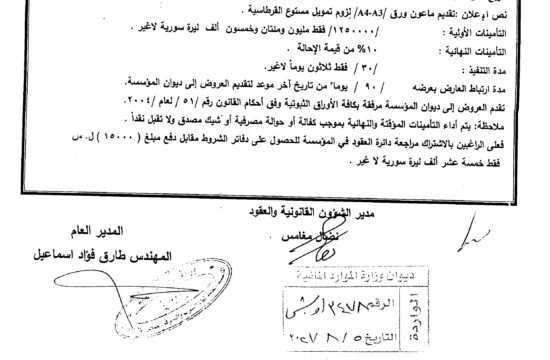 نص الإعلان :تقديم ماعون ورق /A4-A3/ لزوم تمويل مستوع القرطاسية .
التأمينات الأولية : /١٢٥٠٠٠٠/ فقط مليون ومئتان وخمسون ألف ليرة سورية لاغير .
التأمينات النهائية : ١٠% من قيمة الإحالة .
مدة التنفيذ : /٣٠/ فقط ثلاثون يوماً لاغير.
مدة ارتباط العارض بعرضه / ٩٠ / يوماً من تاريخ آخر موعد لتقديم العروض إلى ديوان المؤسسة.
تقدم العروض إلى ديوان المؤسسة مرفقة بكافة الأوراق الثبوتية وفق أحكام القانون رقم /٥١ /لعام /٢٠٠٤.
ملاحظة: يتم أداء التأمينات المؤقتة والنهائية بموجب كفالة أو حوالة مصرفية أو شيك مصدق ولا تقبل نقداً .
فعلى الراغبين بالاشتراك مراجعة دائرة العقود في المؤسسة للحصول على دفاتر الشروط مقابل دفع مبلغ ( ١٥٠٠٠ ) ل. س
فقط خمسة عشر ألف ليرة سورية لا غير .
مدير الشؤون القانونية والعقود
نضال مغامس
المدير العام
المهندس طارق فؤاد اسماعيل
ديوان وزارة الموارد المائية
الواردة
الرقم
التاريخ